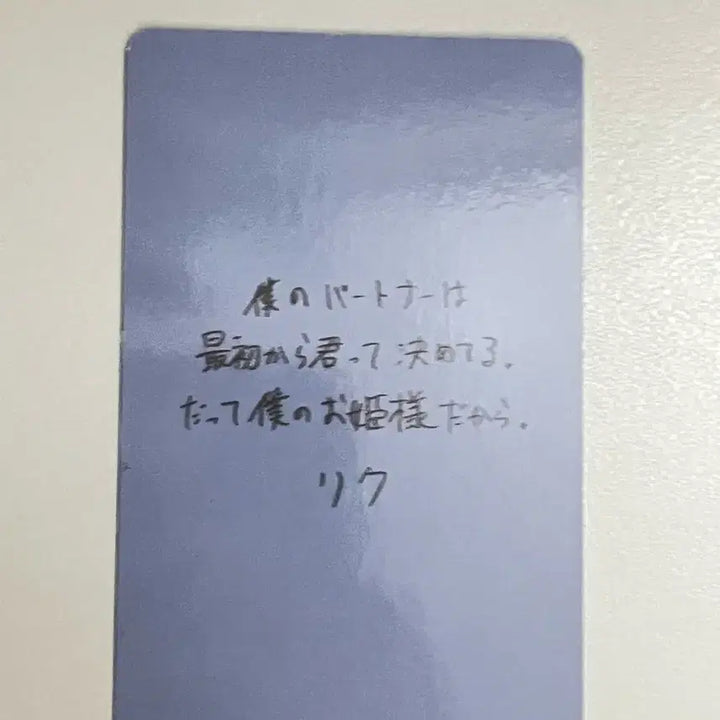 僕のパートナーは
最初から君って決めてる。
だって僕のお姫様だから。
リク